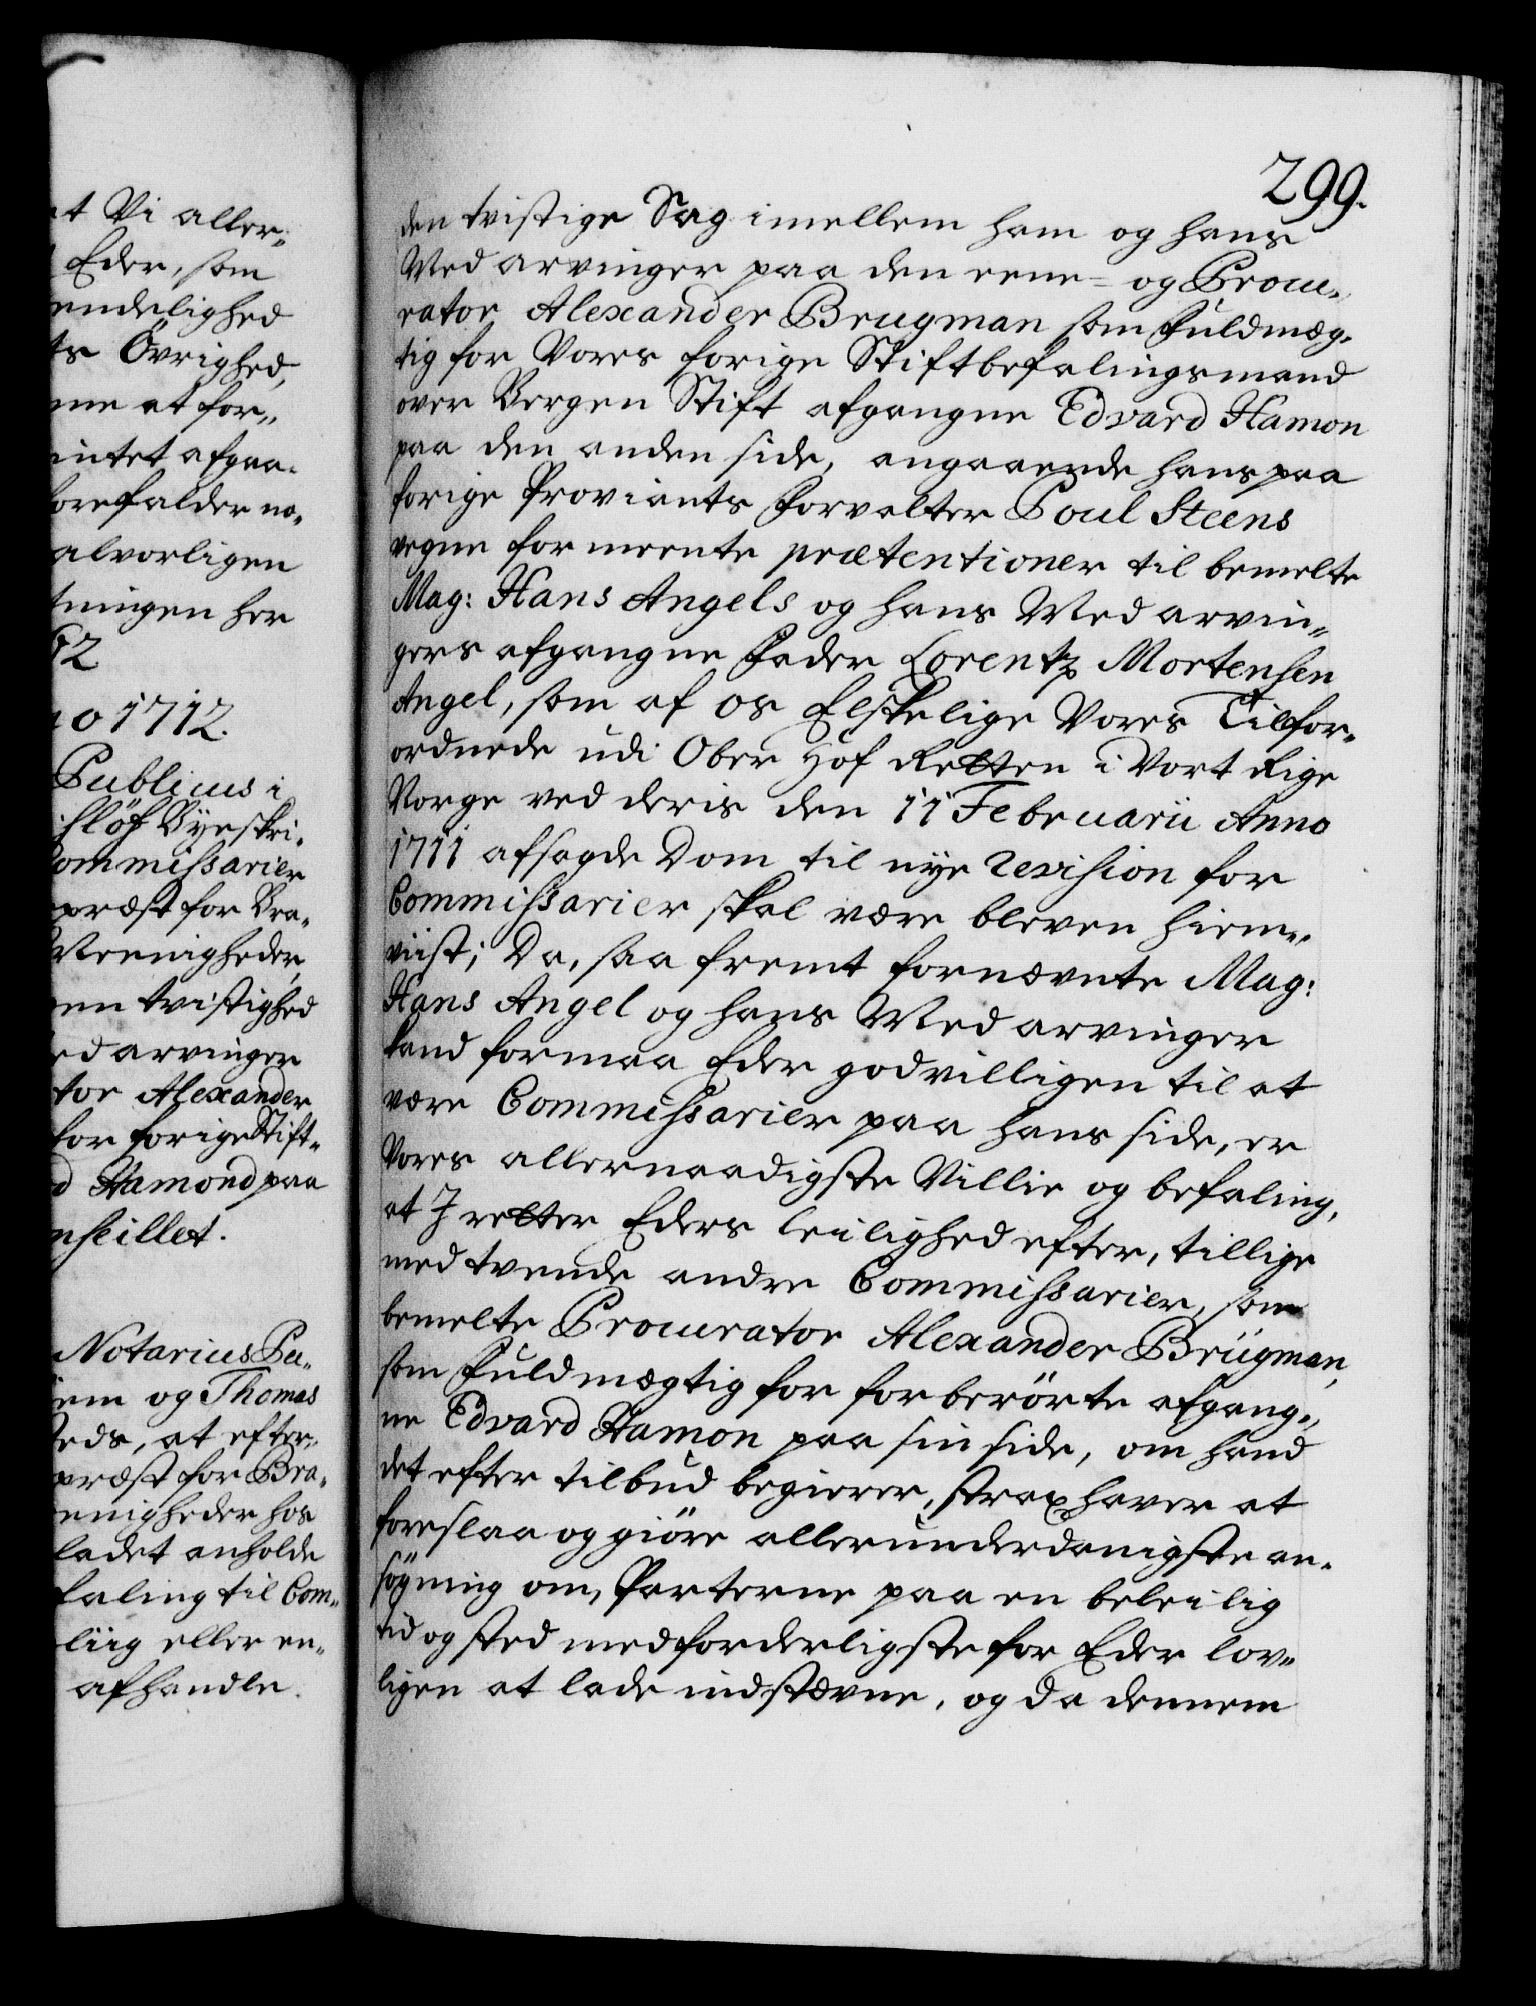 at Vi aller„
Eder, som
endelighed
ts Övrighed,
me at for„
intet afgaa„
forefalder no„
alvorligen
tningen her
62
no 1712.
Publicus i
slöf Byeskri„
Commissarier
præst for Bra„
Meenigheder,
en tvistighed
ed arvinger
tor Alexander
for forige Stift„
d Hamond paa
nseillet.
Notarius Pu„
iem og Thomas
teds, at efter„
præst for Bra„
enigheder hos
ladet anholde
faling til Com„
liig eller en„
afhandle.
299.
den tvistige Sag imellem ham og hans
Med arvinger paa den eene= og Procu„
rator Alexander Brugman som Fuldmæg„
tig for Vores forige Stiftbefalingsmand
over Bergen Stift afgangne Edvard Hamon
paa den anden side, angaaende hans paa
forige Proviants Forvalter Poul Steens
vegne formeente prætentioner til bemelte
Mag: Hans Angels og hans Med arvin„
gers afgangne Fader Lorentz Mortensen
Angel, som af os Elskelige Vores Tilfor„
ordnede udi Ober Hof Retten i Vort Rige
Norge ved deris den 11 Februarii Anno
1711 afsagde Dom til nye revision for
Commissarier skal være bleven hiem„
viist; Da, saa fremt fornævnte Mag:
Hans Angel og hans Med arvinger
kand formaa Eder godvilligen til at
være Commissarier paa hans side, er
Vores allernaadigste Villie og befaling,
at I retter Eders leilighed efter, tillige
med tvende andre Commissarier, som
bemelte Procurator Alexander Brügman,
som Fuldmægtig for forberörte afgang„
ne Edvard Hamon paa sin side, om hand
det efter tilbud begierer, strax haver at
foreslaa og giöre allerunderdanigste an„
sögning om, Parterne paa en beleilig
tid og sted med forderligste for Eder lov„
ligen at lade indstævne, og da dennem